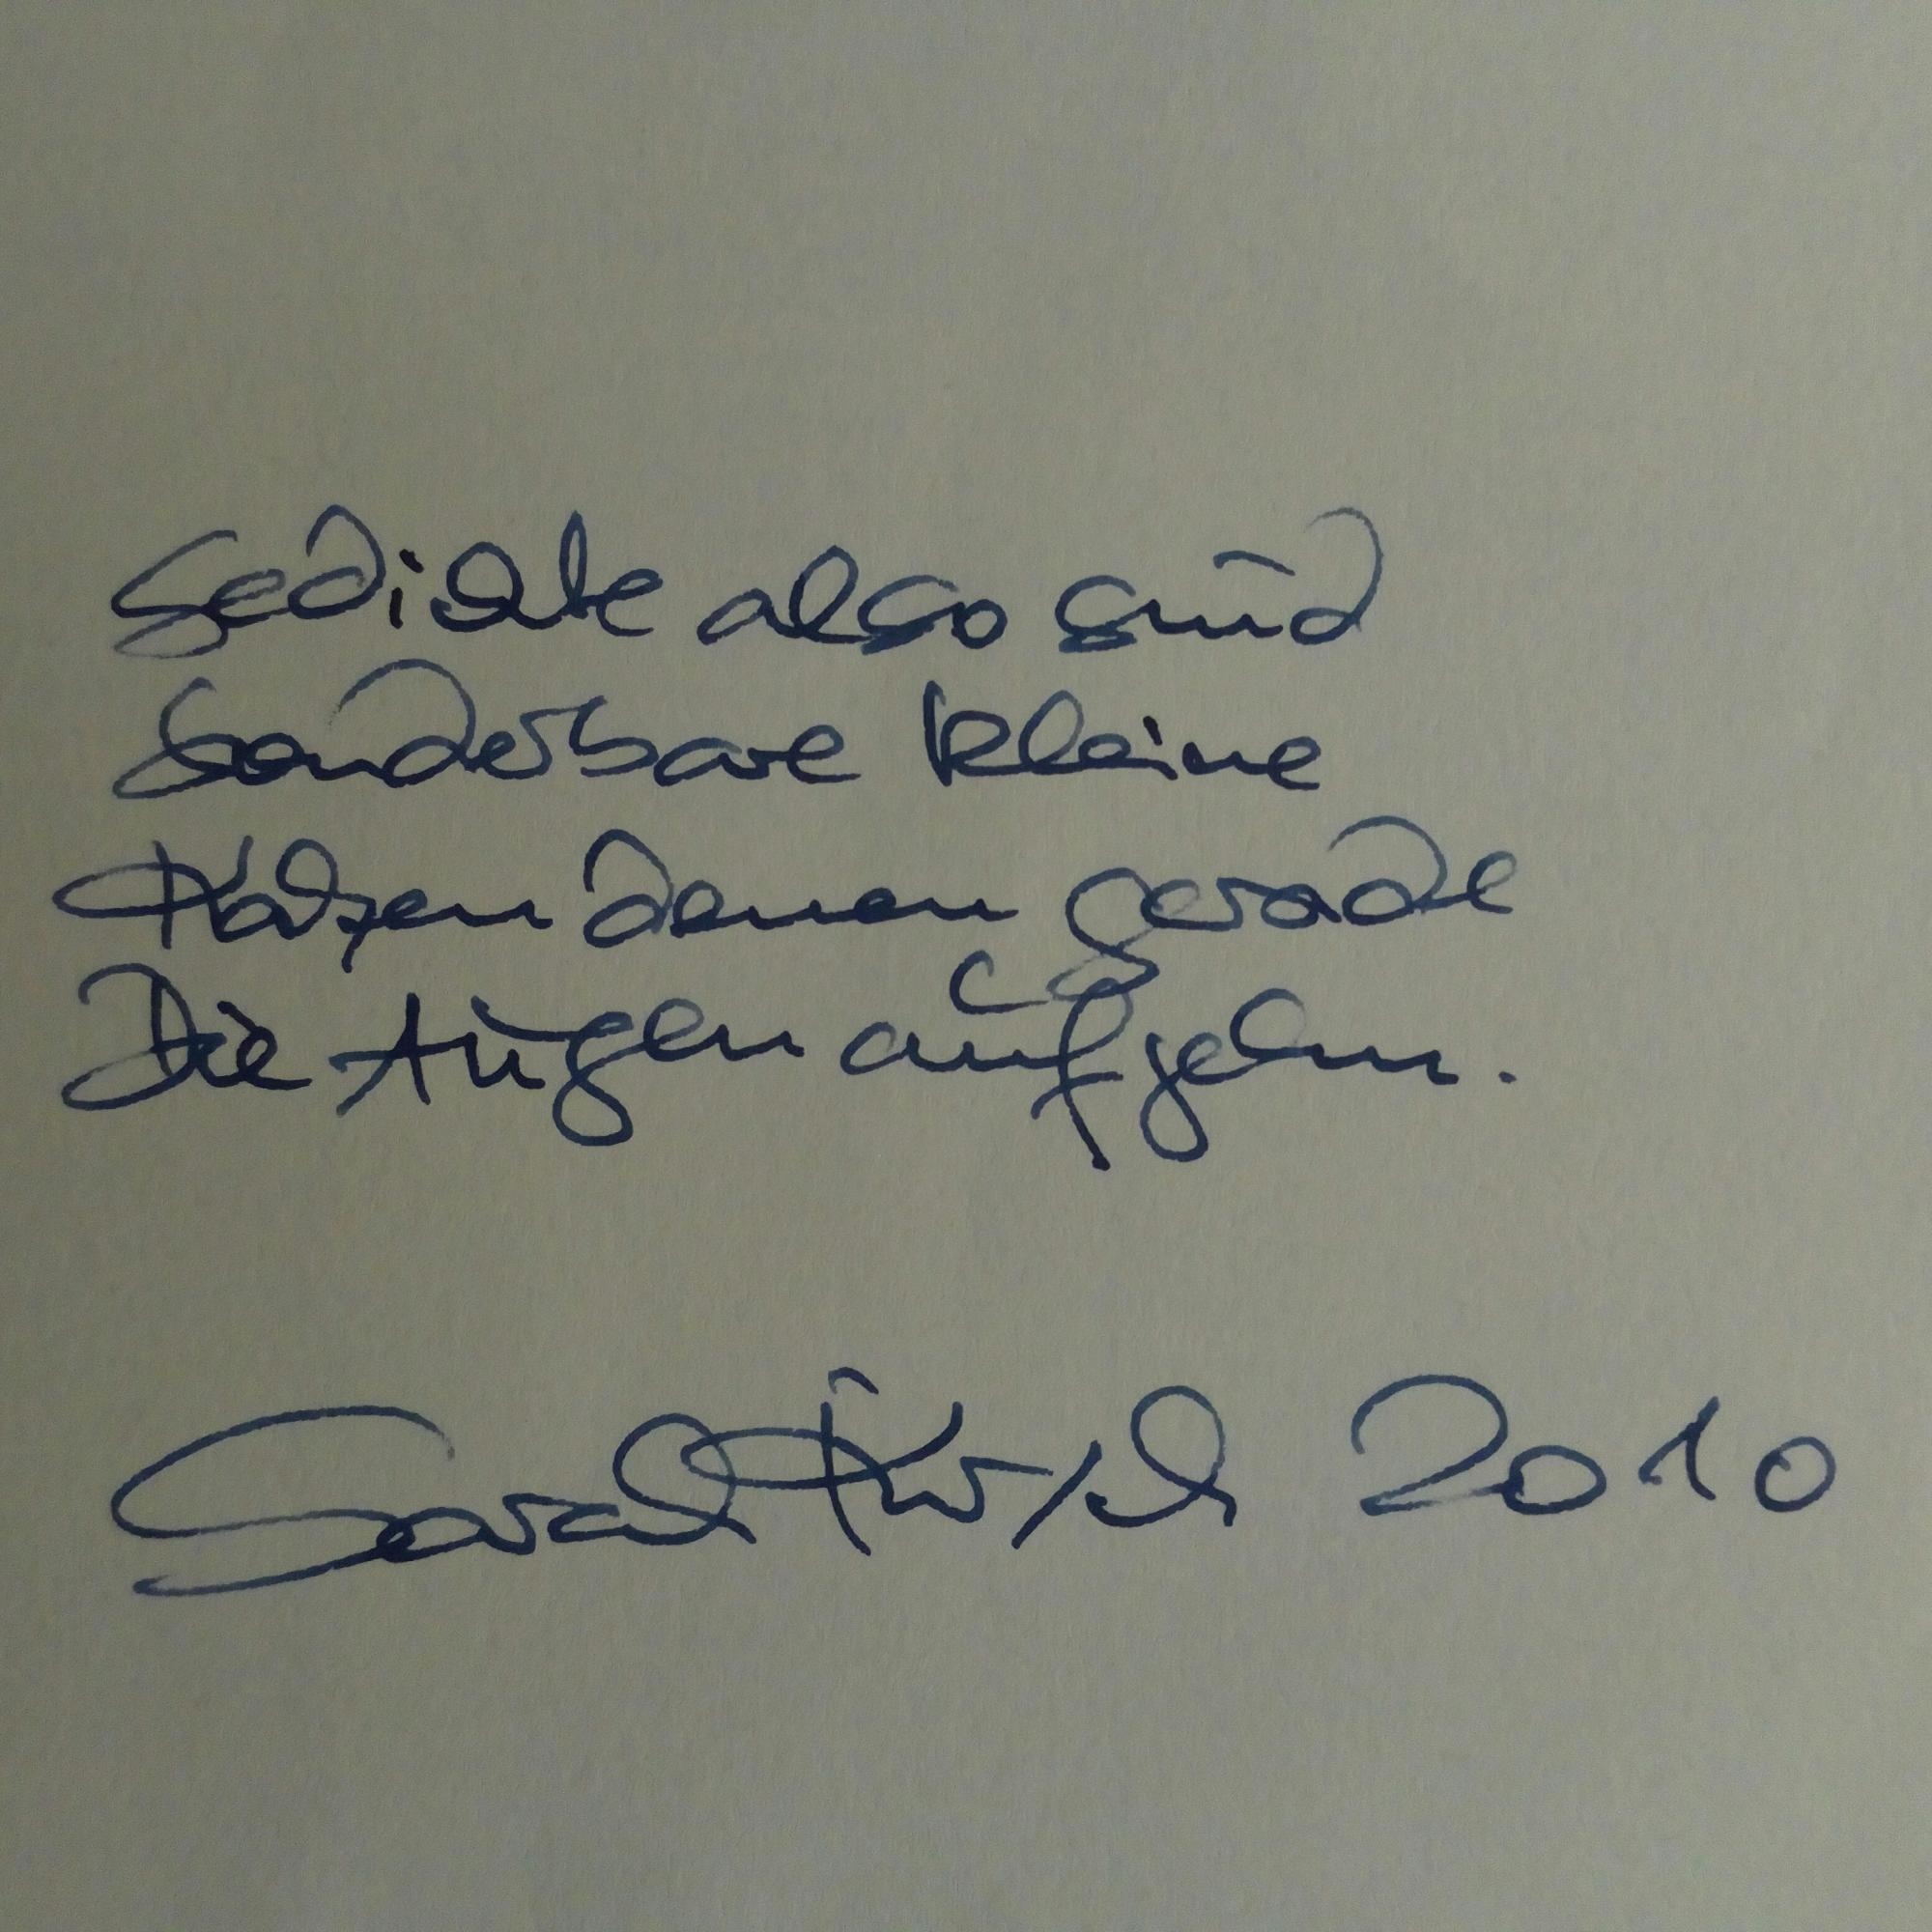 Gedichte also sind
sonderbare kleine
Katzen denen gerade
Die Augen aufgehn.
Sarah Kirsch 2010